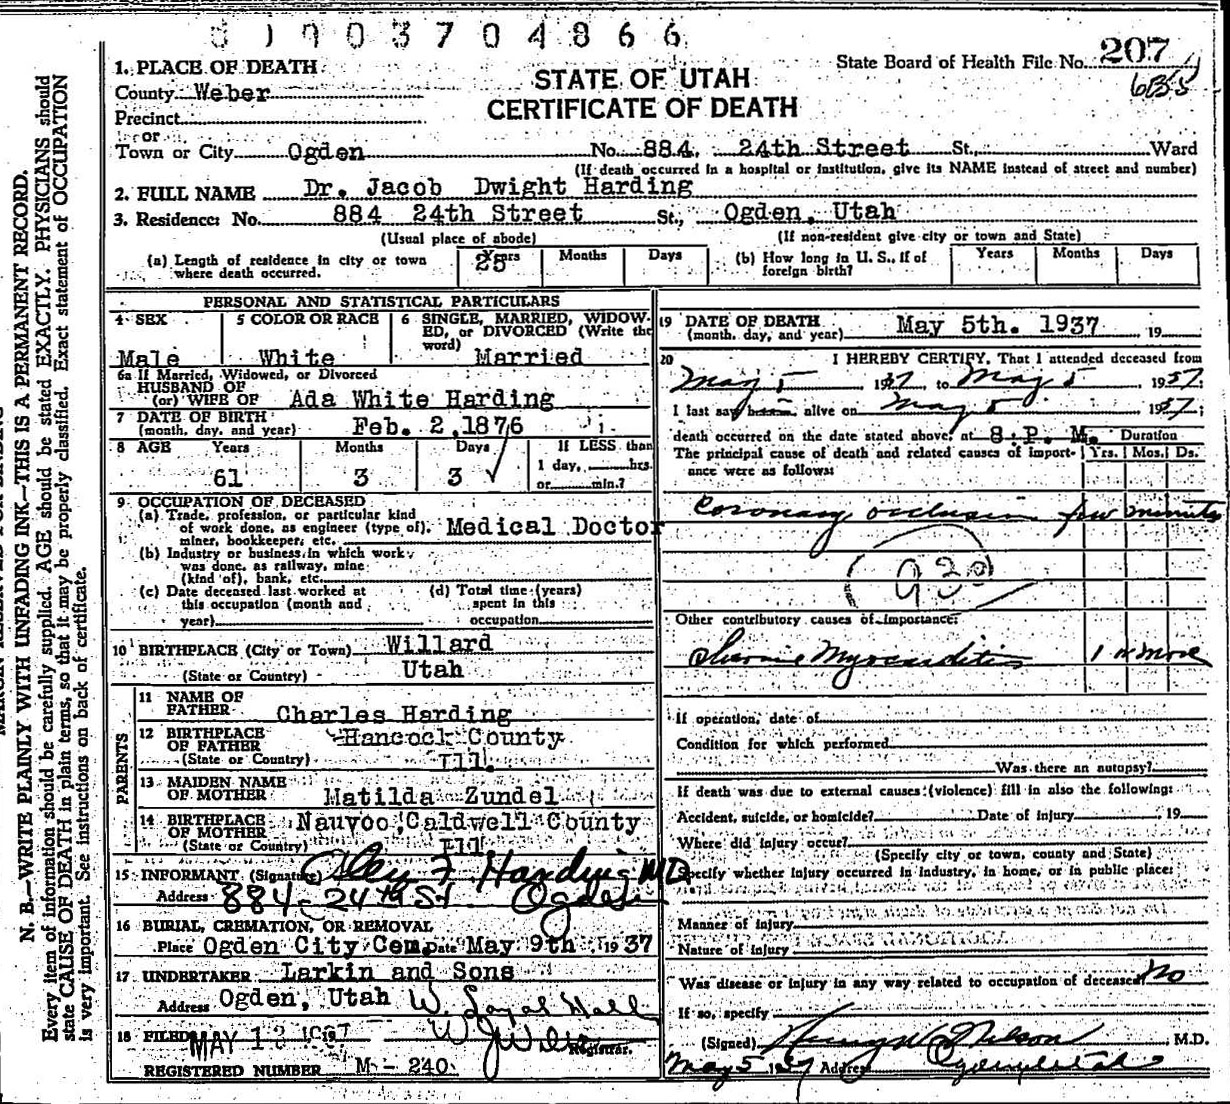 8 1 9 0 3 7 0 4 8 6 6
State Board of Health File No. 207
1. PLACE OF DEATH
STATE OF UTAH
County Weber
CERTIFICATE OF DEATH
Precinct
or
Town or City Ogden No. 884, 24th Street St., Ward
(If death occurred in a hospital or institution, give its NAME instead of street and number)
2. FULL NAME Dr. Jacob Dwight Harding
3. Residence: No. 884 24th Street St., Ogden, Utah
(Usual place of abode) (If non-resident give city or town and State)
(a) Length of residence in city or town where death occurred. 25 Years Months Days
(b) How long in U. S., if of foreign birth? Years Months Days
PERSONAL AND STATISTICAL PARTICULARS
4 SEX Male
5 COLOR OR RACE White
6 SINGLE, MARRIED, WIDOWED, or DIVORCED (Write the word) Married
6a If Married, Widowed, or Divorced
HUSBAND OF
(or) WIFE OF Ada White Harding
7 DATE OF BIRTH
(month, day, and year) Feb. 2, 1876
8 AGE Years Months Days If LESS than
61 3 3 1 day, hrs.
or min.?
9 OCCUPATION OF DECEASED
(a) Trade, profession, or particular kind
of work done, as engineer (type of), Medical Doctor
miner, bookkeeper, etc.
(b) Industry or business in which work
was done, as railway, mine
(kind of), bank, etc.
(c) Date deceased last worked at
this occupation (month and
year)
(d) Total time (years)
spent in this
occupation
10 BIRTHPLACE (City or Town) Willard
(State or Country) Utah
PARENTS
11 NAME OF
FATHER Charles Harding
12 BIRTHPLACE
OF FATHER Hancock County
(State or Country) Ill.
13 MAIDEN NAME
OF MOTHER Matilda Zundel
14 BIRTHPLACE
OF MOTHER Nauvoo, Caldwell County
(State or Country) Ill
15 INFORMANT (Signature) Harding MD
Address 884 - 24th St Ogden
16 BURIAL, CREMATION, OR REMOVAL
Place Ogden City Cem. Date May 9th 1937
17 UNDERTAKER Larkin and Sons
Address Ogden, Utah
18 FILED MAY 19
Registrar.
REGISTERED NUMBER M - 240
19 DATE OF DEATH
(month, day, and year) May 5th. 1937 19
20 I HEREBY CERTIFY, That I attended deceased from
May 5 1937 to May 5 1937
I last saw alive on May 5 1937;
death occurred on the date stated above, at 8 P. M. Duration
The principal cause of death and related causes of importance were as follows: Yrs. Mos. Ds.
Coronary occlusion few minutes
Other contributory causes of importance:
Chronic Myocarditis 1 or more
If operation, date of
Condition for which performed
Was there an autopsy?
If death was due to external causes (violence) fill in also the following:
Accident, suicide, or homicide? Date of injury 19
Where did injury occur?
(Specify city or town, county and State)
Specify whether injury occurred in industry, in home, or in public place:
Manner of injury
Nature of injury
Was disease or injury in any way related to occupation of deceased? No
If so, specify
(Signed) Nelson M.D.
May 5 1937 Address Ogden Utah
N. B.—WRITE PLAINLY WITH UNFADING INK—THIS IS A PERMANENT RECORD.
Every item of information should be carefully supplied. AGE should be stated EXACTLY. PHYSICIANS should
state CAUSE OF DEATH in plain terms, so that it may be properly classified. Exact statement of OCCUPATION
is very important. See instructions on back of certificate.